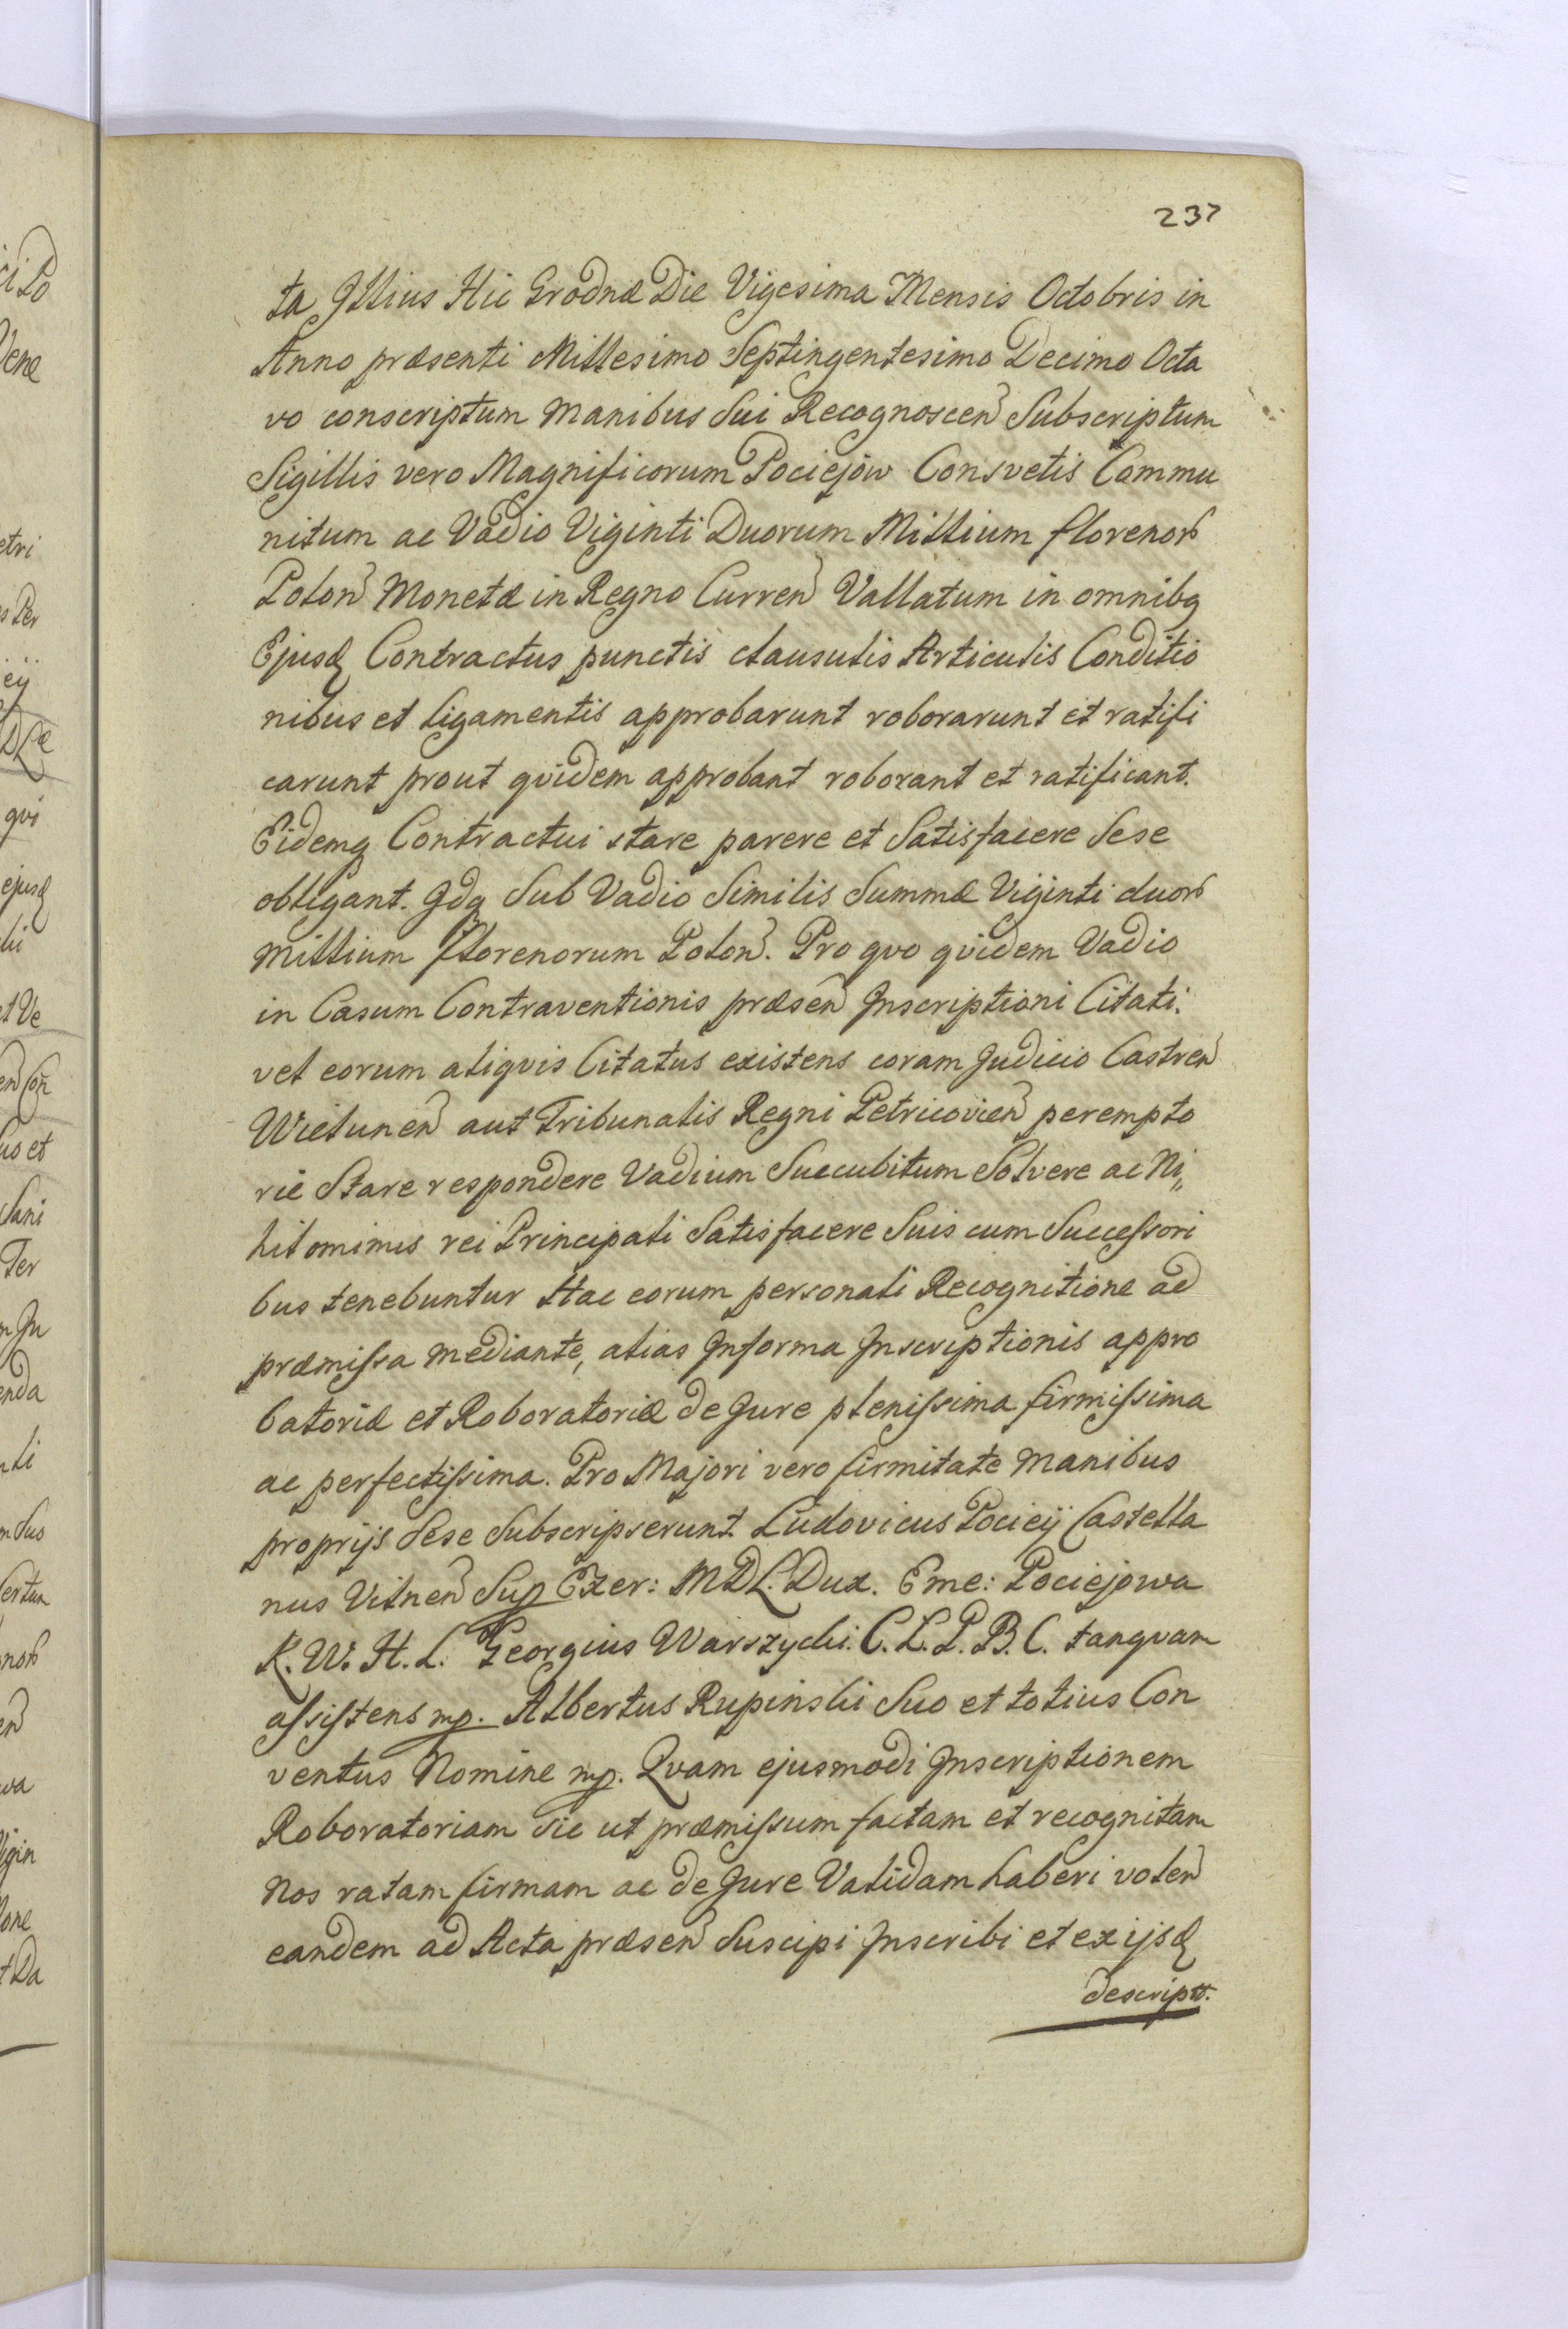 237
ta Illius Hic Grodnæ Die Vigesima Mensis Octobris in
Anno præsenti Millesimo Septingentesimo Decimo Octa
vo conscriptum Manibus Sui Recognoscen Subscriptum
Sigillis vero Magnificorum Pociejow Consvetis Commu
nitum ac Vadio Viginti Duorum Millium florenor
Polon Monetæ in Regno Curren Vallatum in omnibq
Ejusd Contractus punctis clausulis Articulis Conditio
nibus et ligamentis approbarunt roborarunt et ratifi
carunt prout qvidem approbant roborant et ratificant.
Eidemq Contractui stare parere et Satisfacere Sese
obligant. Idq Sub Vadio Similis Summæ Viginti duor
Millium Florenorum Polon. Pro qvo qvidem Vadio
in Casum Contraventionis præsen Inscriptioni Citati.
vel eorum aliqvis Citatus existens coram Judicio Castren
Wielunen aut Tribunalis Regni Petricovien perempto
rie Stare respondere Vadium Succubitum Solvere ac Ni„
hilominus rei Principali Satisfacere Suis cum Successori
bus tenebuntur Hac eorum personali Recognitione ad
præmissa mediante, alias Informa Inscriptionis appro
batoriæ et Roboratoriæ de Jure plenissima firmissima
ac perfectissima. Pro Majori vero firmitate Manibus
proprijs Sese Subscripserunt. Ludovicus Pociey Castella
nus Vilnen Sup Exer: MDL. Dux. Eme: Pociejowa
K. W. H. L. Georgius Warszycki. C. L. P. B. C. tanqvam
assistens mp. Albertus Rupinski Suo et totius Con
ventus Nomine mp. Qvam ejusmodi Inscriptionem
Roboratoriam sic ut præmissum factam et recognitam
Nos ratam firmam ac de Jure Validam haberi volen
eandem ad Acta præsen Suscipi Inscribi et ex ijsd
descriptt.